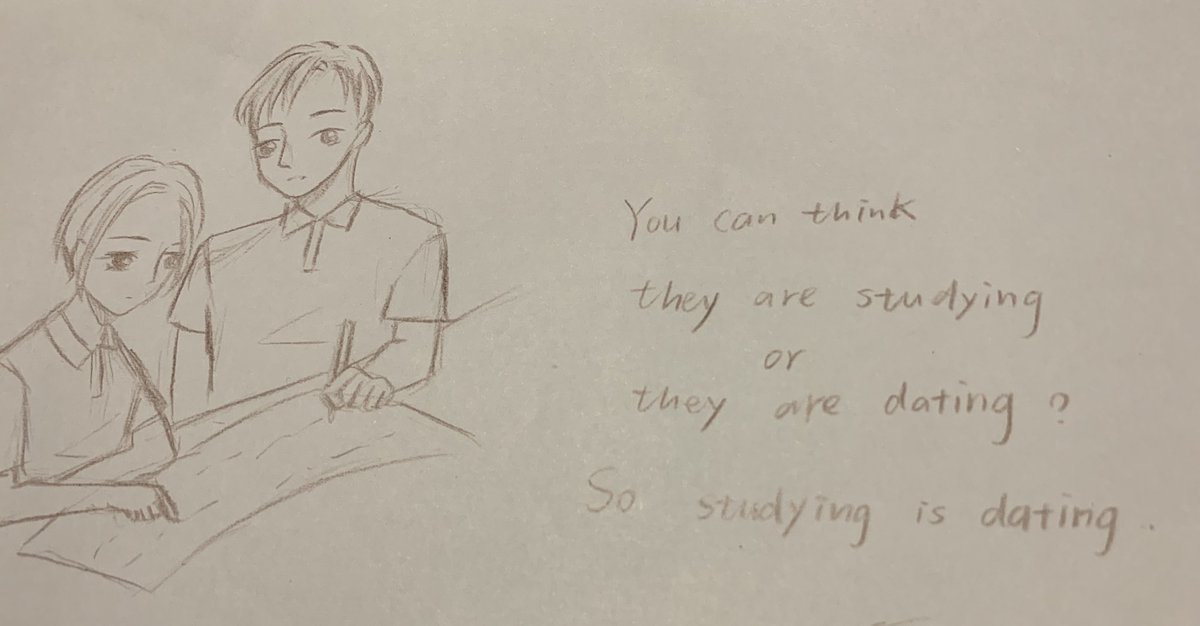 You can think
they are studying
or
they are dating ?
So studying is dating .